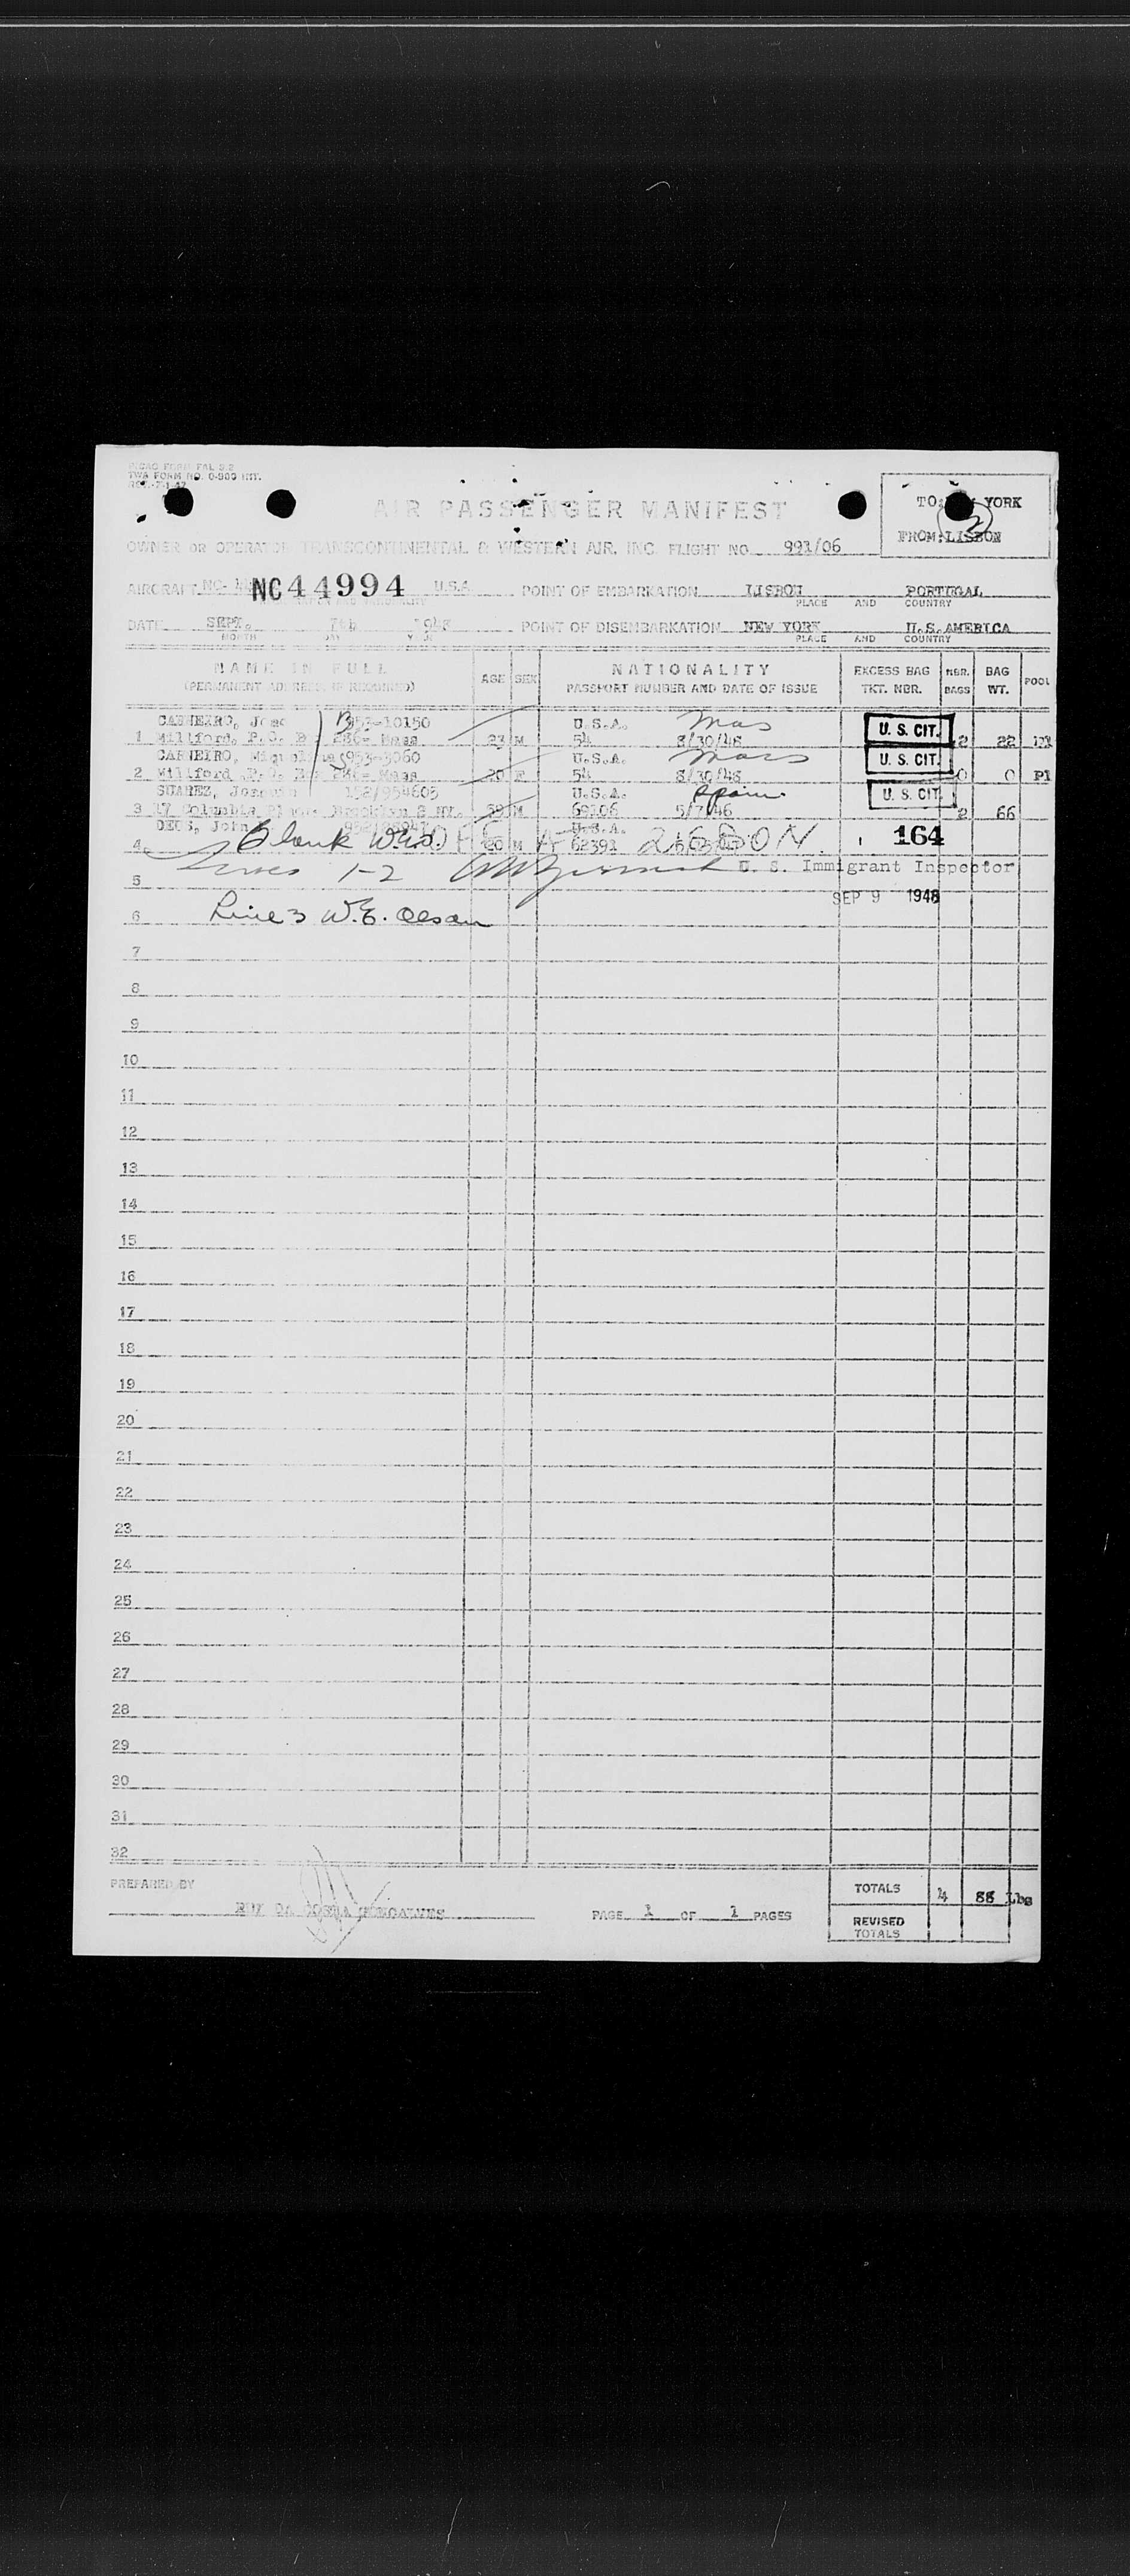 PICAO FORM FAL 3.2
TWA FORM NO. 0-980 INT.
AIR PASSENGER MANIFEST
TO: NEW YORK
2
FROM: LISBON
OWNER OR OPERATOR TRANSCONTINENTAL & WESTERN AIR. INC. FLIGHT NO. 991/06
AIRCRAFT NC- NC44994 U.S.A. POINT OF EMBARKATION LISBON PORTUGAL
PLACE AND COUNTRY
DATE SEPT. 7th 1948 POINT OF DISEMBARKATION NEW YORK U.S.AMERICA
MONTH DAY YEAR PLACE AND COUNTRY
NAME IN FULL AGE SEX NATIONALITY EXCESS BAG NBR. BAG POOL
(PERMANENT ADDRESS IF REQUIRED) PASSPORT NUMBER AND DATE OF ISSUE TKT. NBR. BAGS WT.
CARNEIRO, Jose 953-10150 U.S.A. Mas U. S. CIT.
1 Millford, P.O. 286- Mass 23 M 54 8/30/48 2 22 P1
CARNEIRO, 953-3060 U.S.A. Mass U. S. CIT.
2 Millford, P.O. 286- Mass 20 F 54 8/30/48 0 0 P1
SUAREZ, Joaquin 152/954605 U.S.A. Spain U. S. CIT.
3 17 Columbia Place Brooklyn 2 NY. 59 M 69106 5/7/46 2 66
DEUS, John U.S.A.
4 Blank W.E. 20 M 62391 164
Lines 1-2 U. S. Immigrant Inspector
5 SEP 9 1948
6 Line 3 W.E. Olson
7
8
9
10
11
12
13
14
15
16
17
18
19
20
21
22
23
24
25
26
27
28
29
30
31
32
PREPARED BY TOTALS 4 88 Lbs
RUY DA COSTA GONCALVES PAGE 1 OF 1 PAGES REVISED
TOTALS